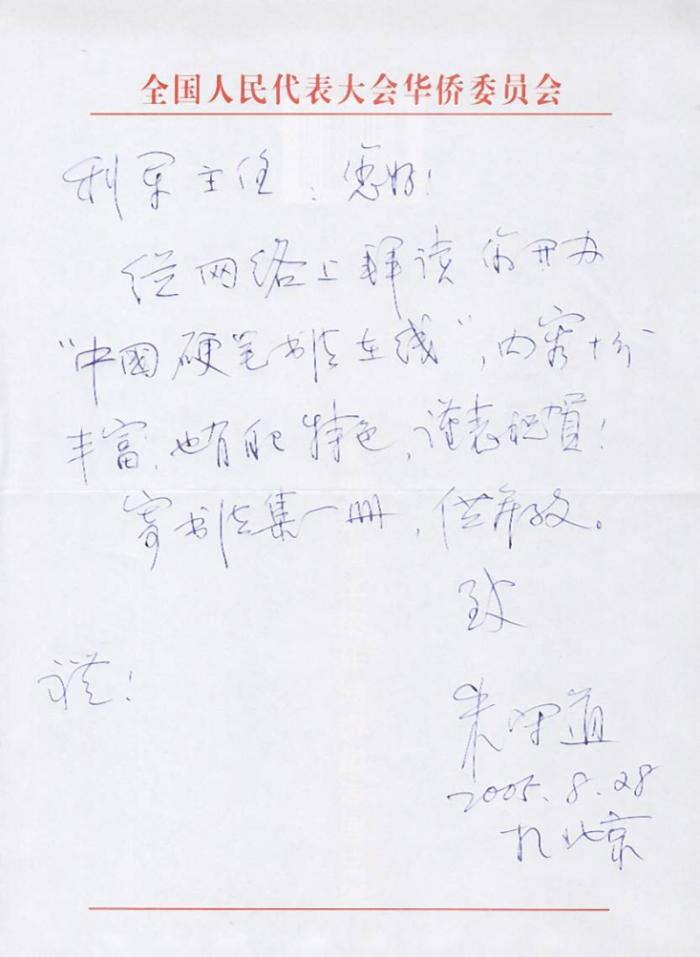 全国人民代表大会华侨委员会
利军主任：您好！
从网络上拜读你开办
“中國硬笔书法在线”，内容十分
丰富，也有自己特色，谨表祝贺！
寄书法集一册，供参考。
致
礼！
朱守道
2005.8.28
於北京